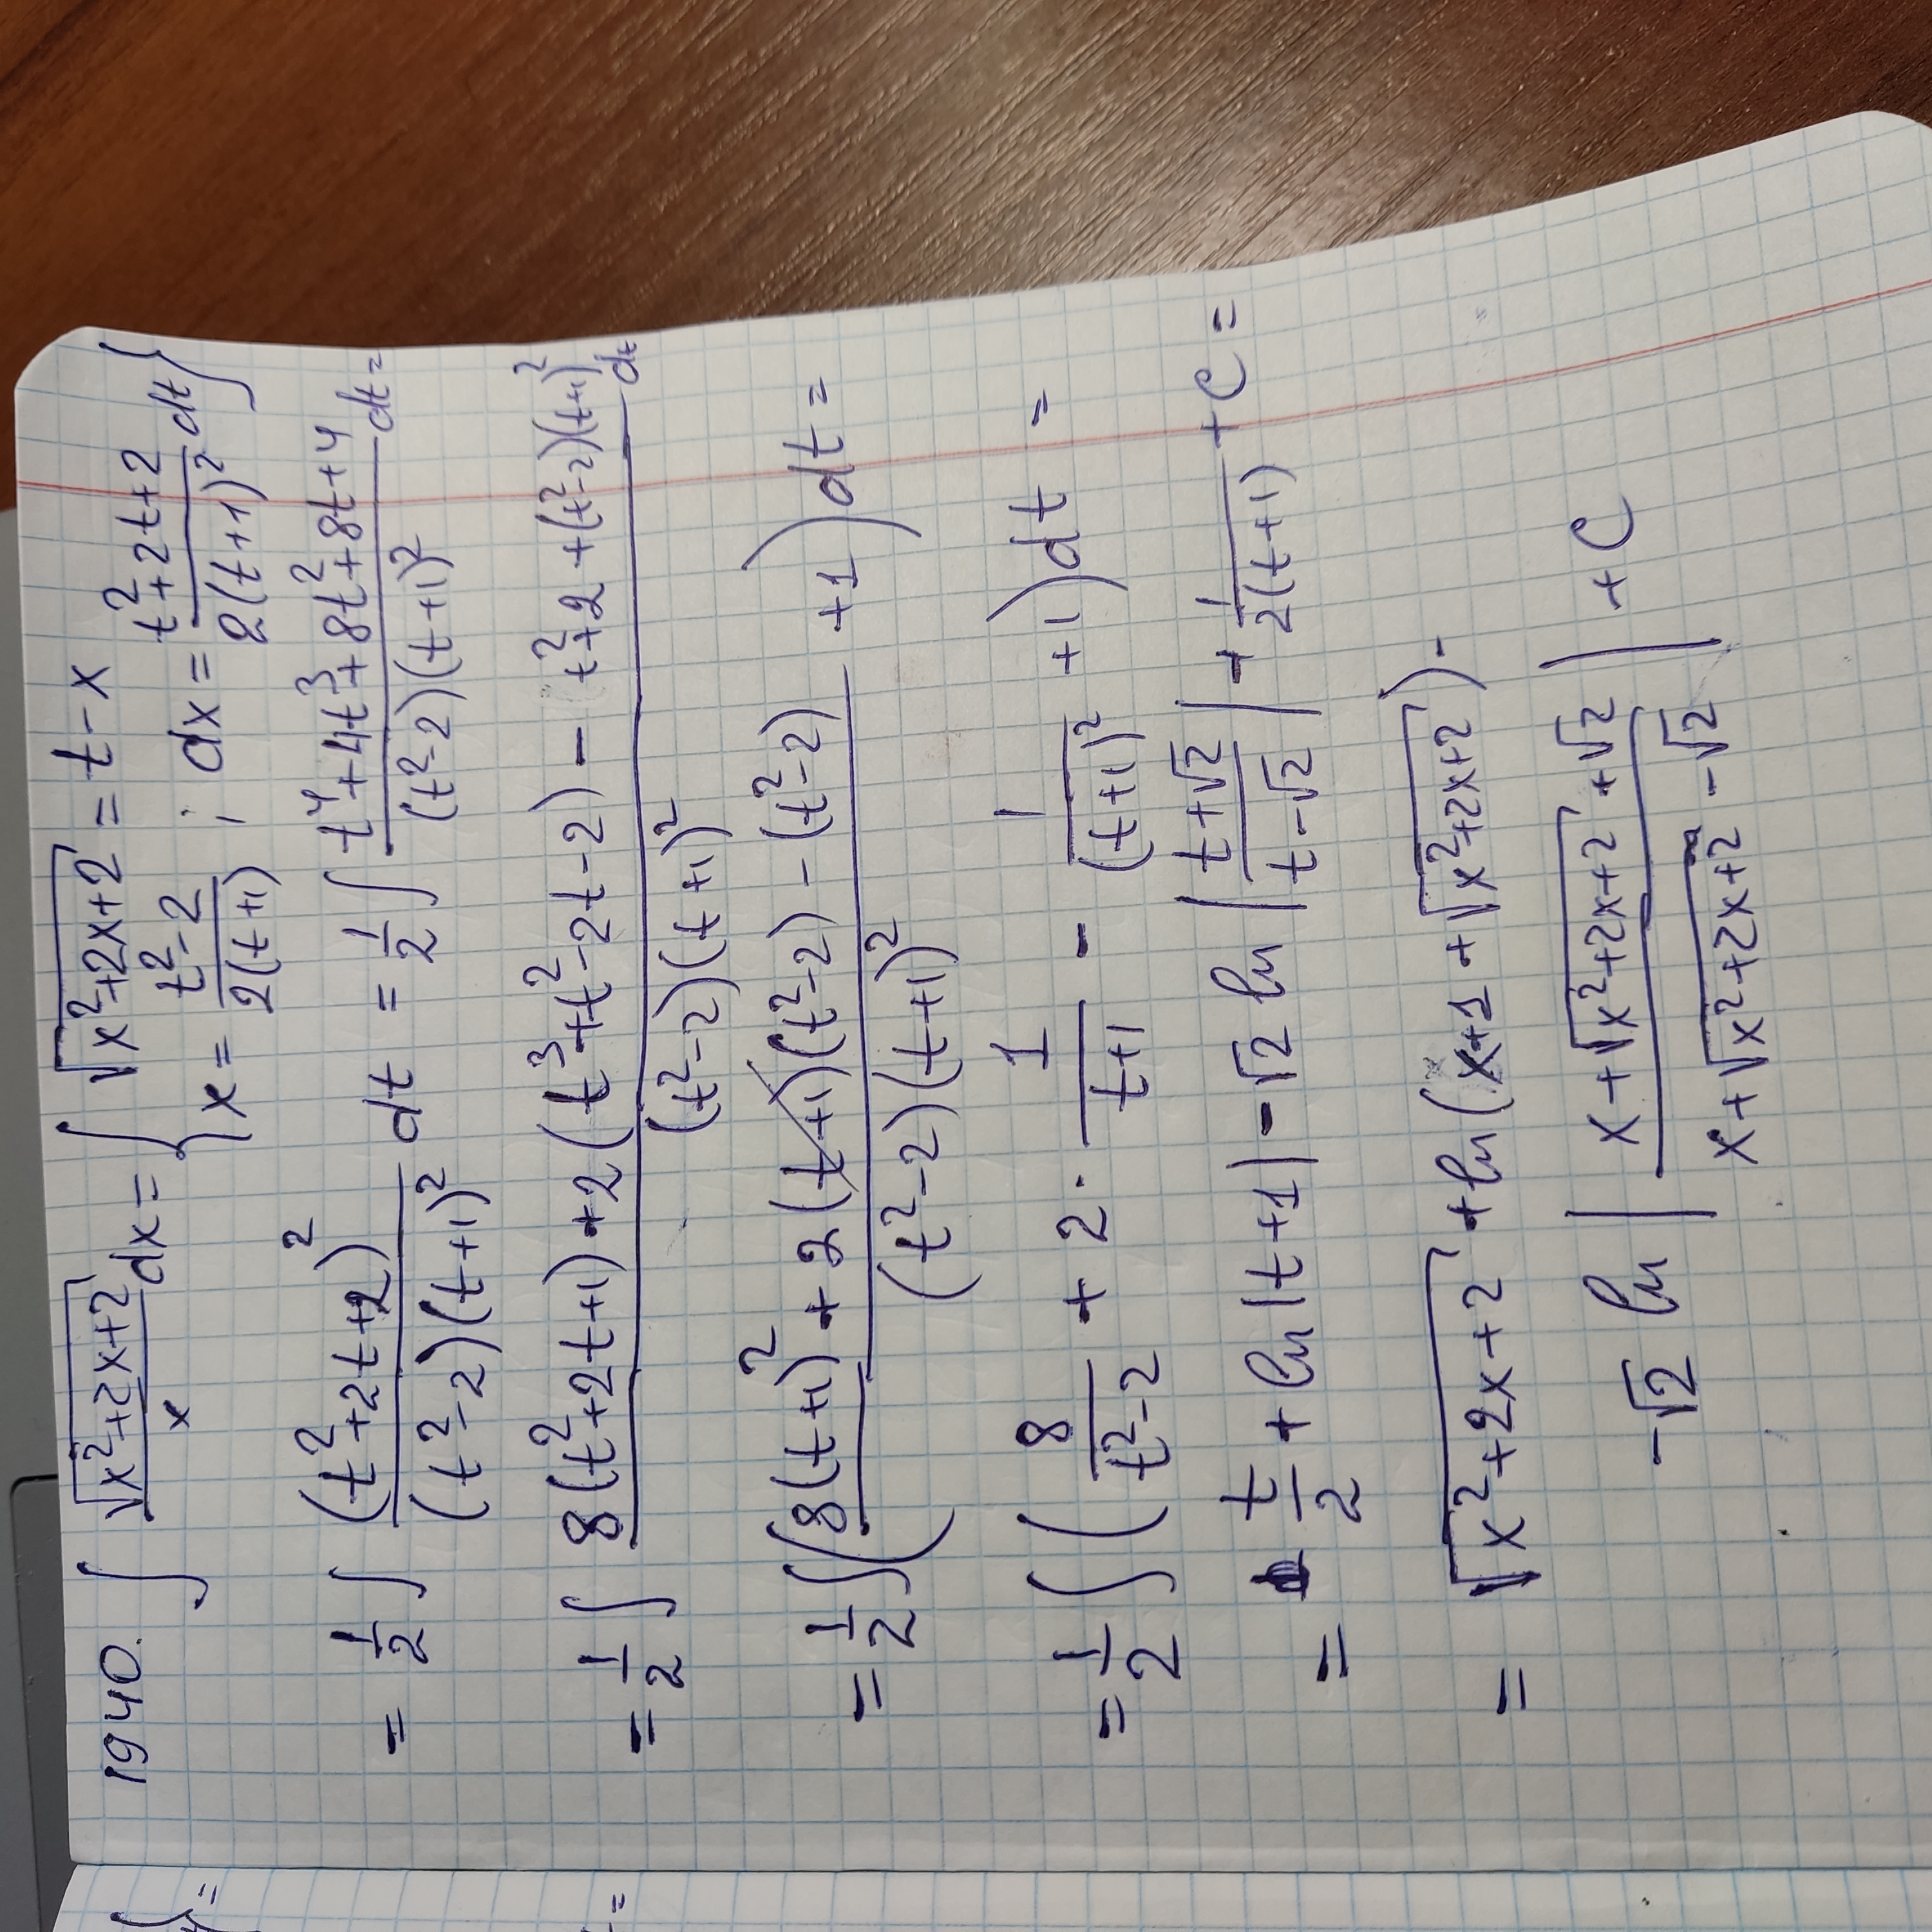 1940. ∫ √(x²+2x+2)/x dx = { √(x²+2x+2) = t-x
x = (t²-2)/(2(t+1)) ; dx = (t²+2t+2)/(2(t+1)²) dt }
= 1/2 ∫ (t²+2t+2)²/((t²-2)(t+1)²) dt = 1/2 ∫ (t⁴+4t³+8t²+8t+4)/((t²-2)(t+1)²) dt =
= 1/2 ∫ (8(t²+2t+1)+2(t³+t²-2t-2) - t²+2+(t²-2)(t+1)²)/((t²-2)(t+1)²) dt
= 1/2 ∫ ((8(t+1)²+2(t+1)(t²-2)-(t²-2))/((t²-2)(t+1)²) +1) dt =
= 1/2 ∫ (8/(t²-2) + 2·1/(t+1) - 1/(t+1)² +1) dt =
= t/2 + ln|t+1| - √2 ln|(t+√2)/(t-√2)| + 1/(2(t+1)) + C =
= √(x²+2x+2) + ln(x+1+√(x²+2x+2)) -
-√2 ln|(x+√(x²+2x+2)+√2)/(x+√(x²+2x+2)-√2)| + C